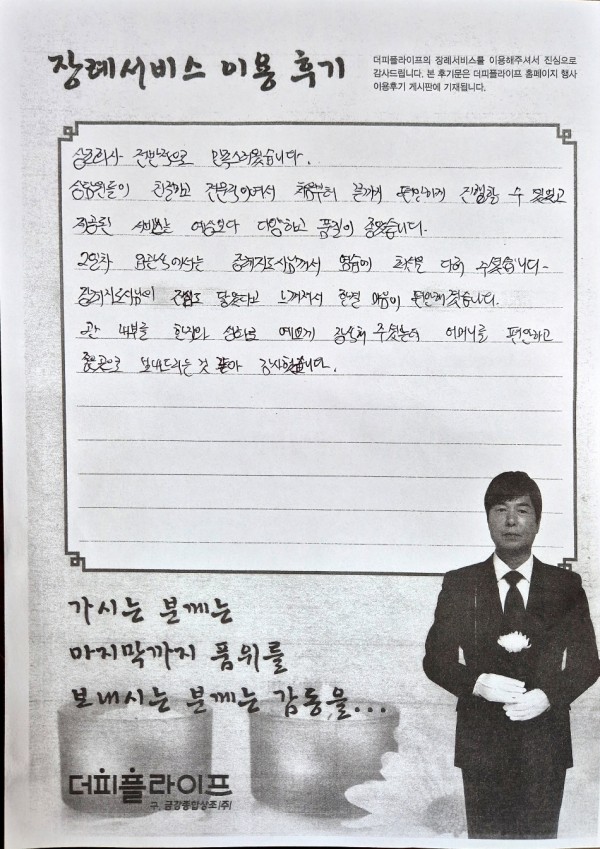 장례서비스 이용 후기
더피플라이프의 장례서비스를 이용해주셔서 진심으로
감사드립니다. 본 후기문은 더피플라이프 홈페이지 행사
이용후기 게시판에 기재됩니다.
상조회사 전반적으로 만족스러웠습니다.
상담원들이 친절하고 전문적이어서 처음부터 끝까지 편안하게 진행할 수 있었고
제공된 서비스는 예상보다 다양하고 품질이 좋았습니다.
2일차 입관식에서는 장례지도사님께서 염습에 최선을 다해 주셨습니다.
장례지도사님의 진심도 닿았다고 느껴져서 한결 마음이 편안해졌습니다.
관 내부를 한지와 생화로 예쁘게 장식해 주셨는데 어머니를 편안하고
좋은곳으로 보내드리는 것 같아 감사했습니다.
가시는 분께는
마지막까지 품위를
보내시는 분께는 감동을...
더피플라이프
구. 금강종합상조(주)